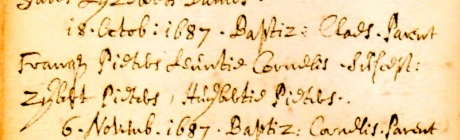 18 · Octob : 1687 · Baptiz : Claes · Parent
Frans Pieters Leuntie Cornelis · Suscept :
Pieters, Huybertie Pieters ·
6 · Novemb · 1687 · Baptiz : Cornelis · Parent